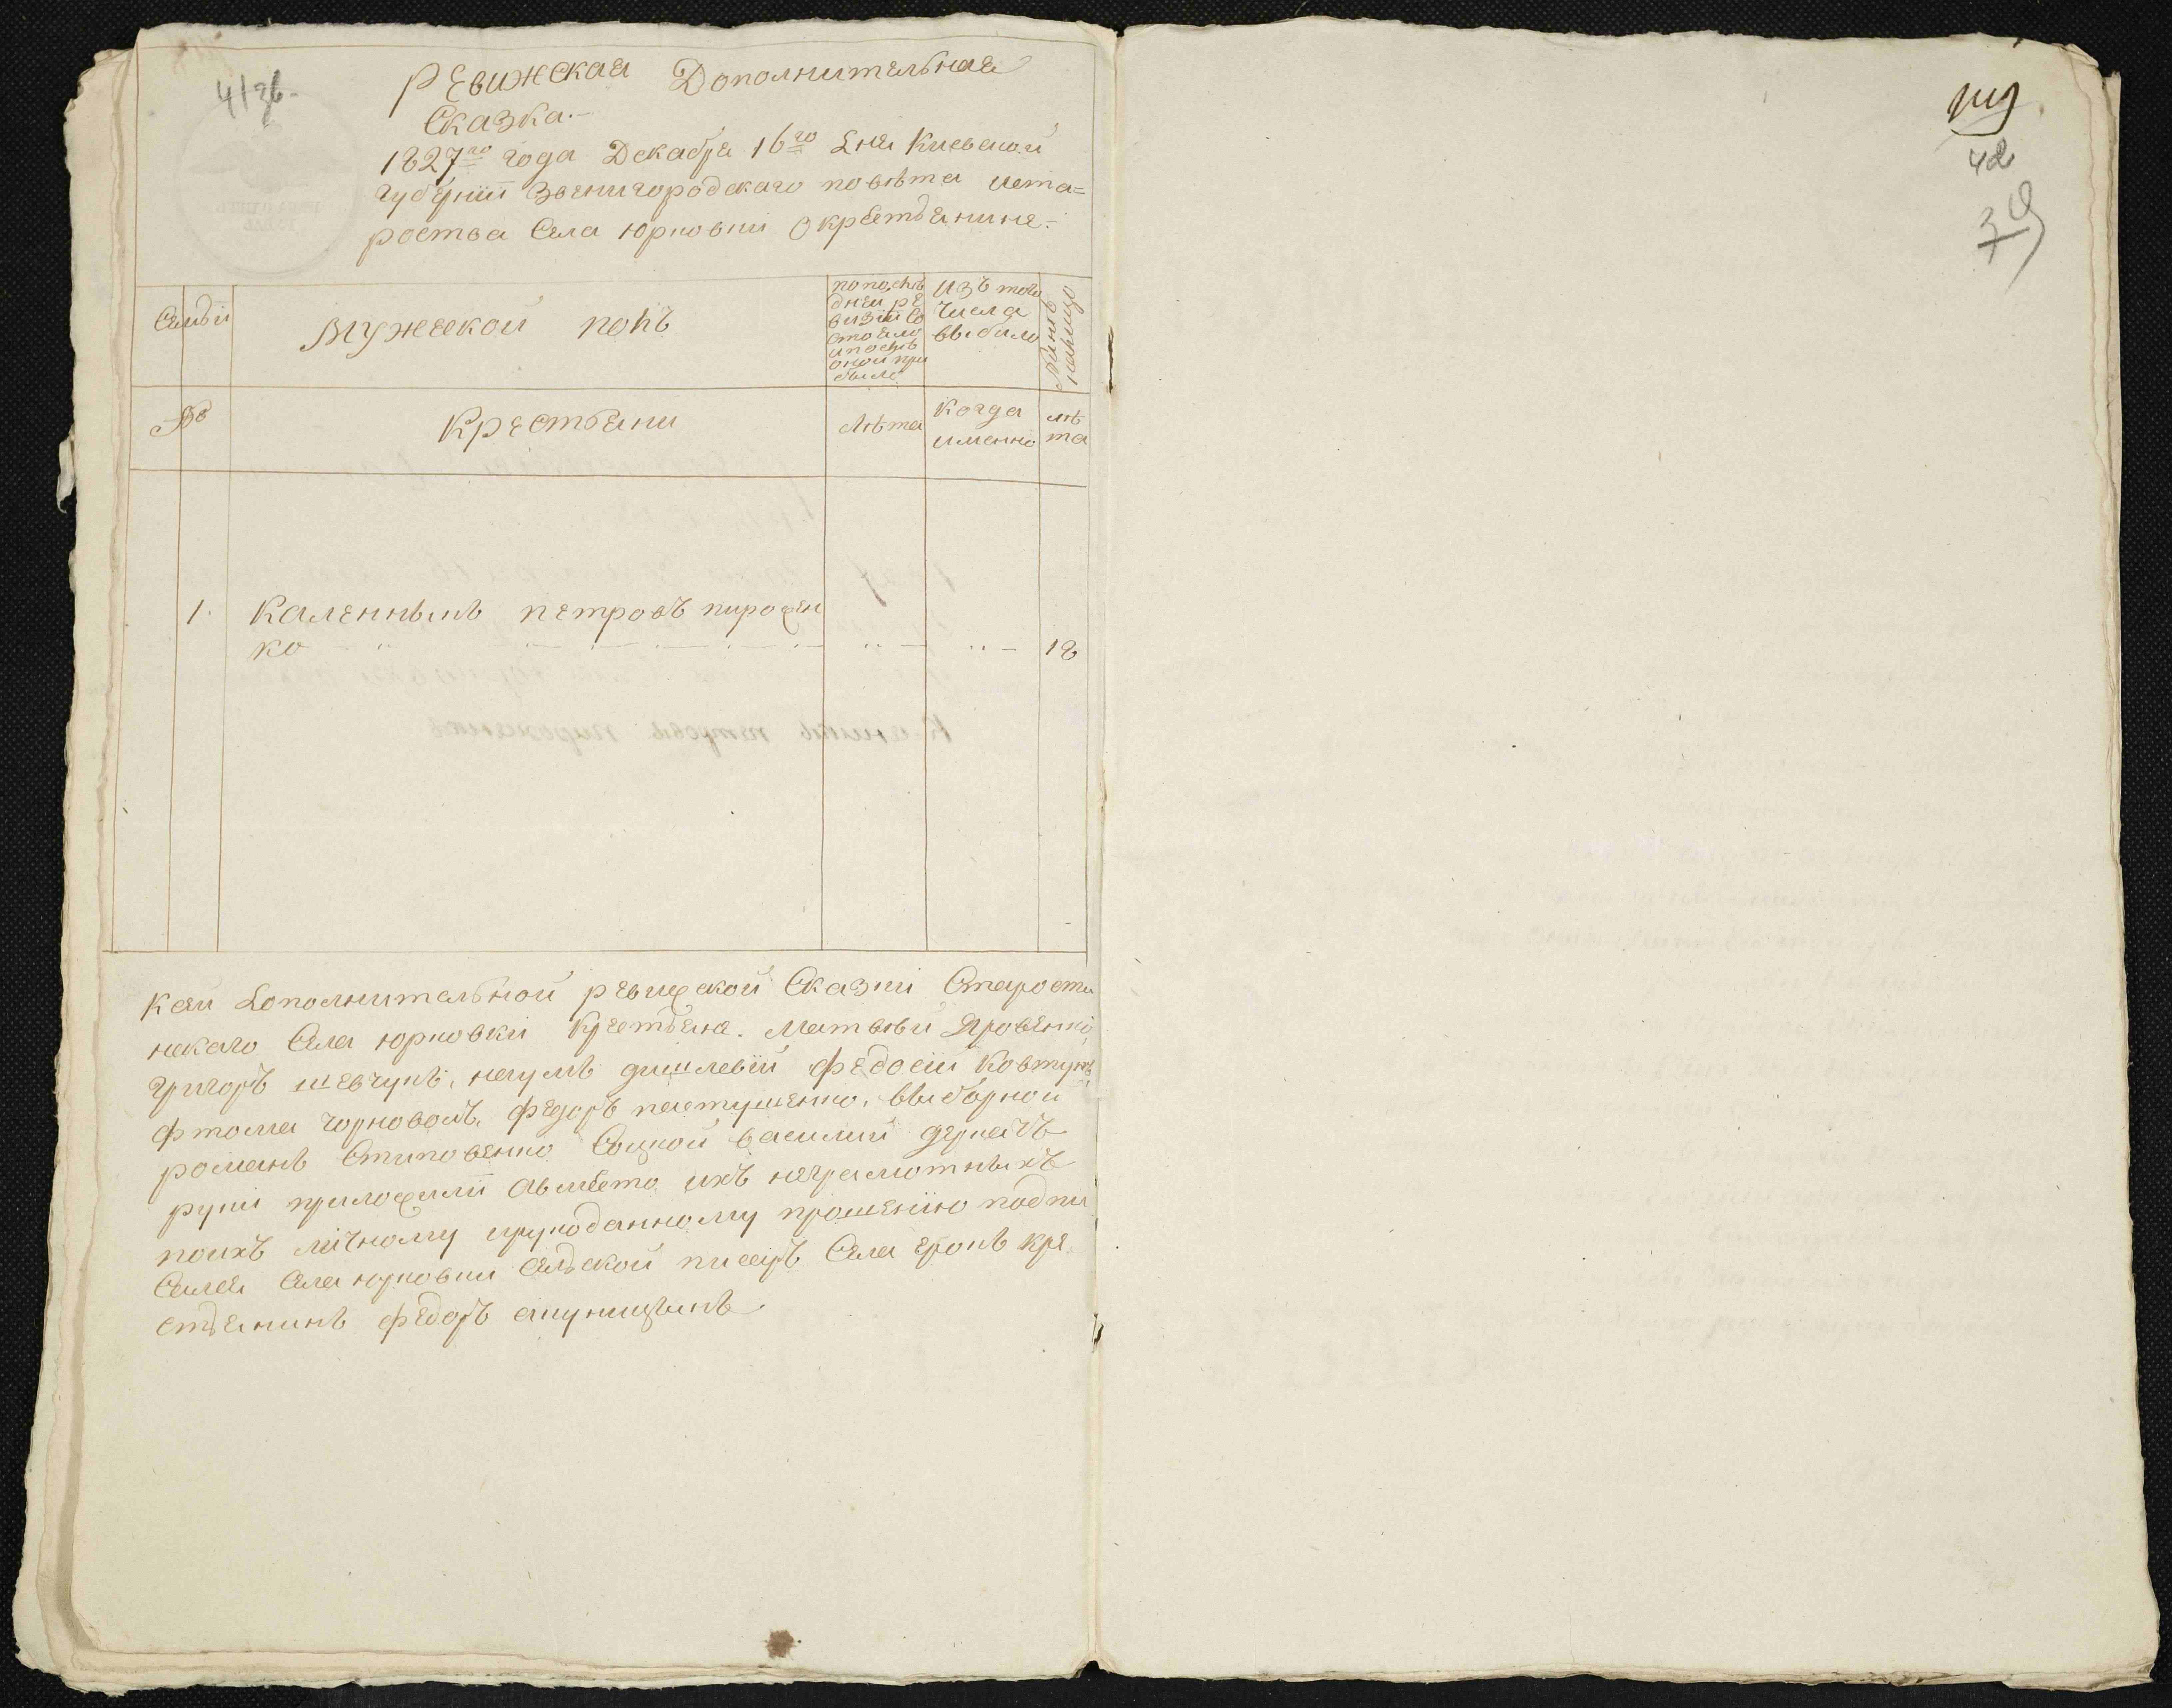 41 зв.
Ревижская Дополнительная
Сказка.
1827го года Декабря 16го дня Киевской
губернїи Звенигородскаго повѣта иста=
роства Села Юрковки О крестьянине.
Семьи
Мужеской полъ
по послѣ
дней ре
визїи со
стояло
и послѣ
оной при
было
Изъ того
числа
выбыло
Нынѣ
налицо
№
Крестьяни
Лѣта
Когда
именно
лѣ
та
1. Каленныкъ петровъ пироженко
ко 18
Ксей дополнительной ревижской Сказки Старостин
скаго Села юрковки Крестьяне. Матвѣй Яровенко,
григоръ шевчукъ, наумъ дишлевїй федосїй Ковтунъ,
фтома чорноволъ, федоръ пастушенко, выборной
романъ Стиповенко Соцкой василий деркачъ
руки приложили авмѣсто ихъ неграмотныхъ
поихъ личному ирукоданному прошенїю подпи
Села юрковки Сельской писаръ Села
стьянинъ федоръ
119
42
39